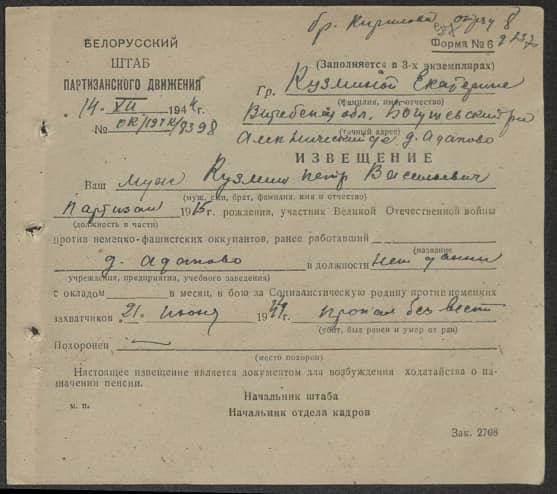 бр. Кирилова отряд 8
БЕЛОРУССКИЙ
ШТАБ
ПАРТИЗАНСКОГО ДВИЖЕНИЯ
14. XII 1944г.
№ 8398
Форма № 6
(Заполняется в 3-х экземплярах)
Гр. Кузминой Екатерине
(фамилия, имя, отчество)
Витебская обл.
(точный адрес)
д. Адапово
ИЗВЕЩЕНИЕ
Ваш муж Кузмин Петр Васильевич
(муж, сын, брат, фамилия, имя и отчество)
партизан 1915г. рождения, участник Великой Отечественной войны
(должность в части)
против немецко-фашистских оккупантов, ранее работавший
(название
д. Адапово в должности нет данни
учреждения, предприятия, учебного заведения)
с окладом в месяц, в бою за Социалистическую родину против немецких
захватчиков 21. июня 1944г. пропал без вести
(убит, был ранен и умер от ран)
Похоронен —
(место похорон)
Настоящее извещение является документом для возбуждения ходатайства о на-
значении пенсии.
Начальник штаба
м. п.
Начальник отдела кадров
Зак. 2708